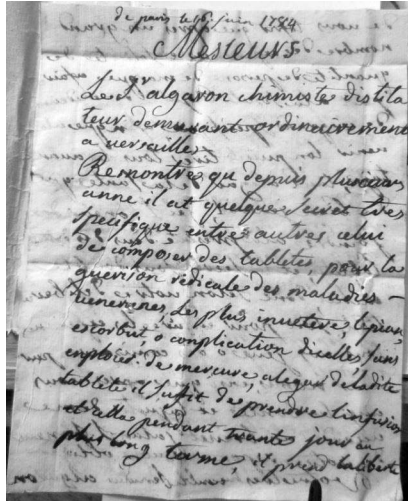 de paris le 16 juin 1784
Messieurs
Le S. algaron chimiste distila
teur demeurant ordinairement
a versailles
Remontre qu depuis plusieurs
anne il at quelques secret tres
specifique entres autres celui
de composer des tablets, pour la
guerison redicale des maladies
veneriennes les plus invetere,
escorbut, o complication dicelles, sans
enploier de mercure alegard deladite
tablets il suffit de prendre linfusion
dicelle pendant trante jour au
plus long terme, il prend laliberte